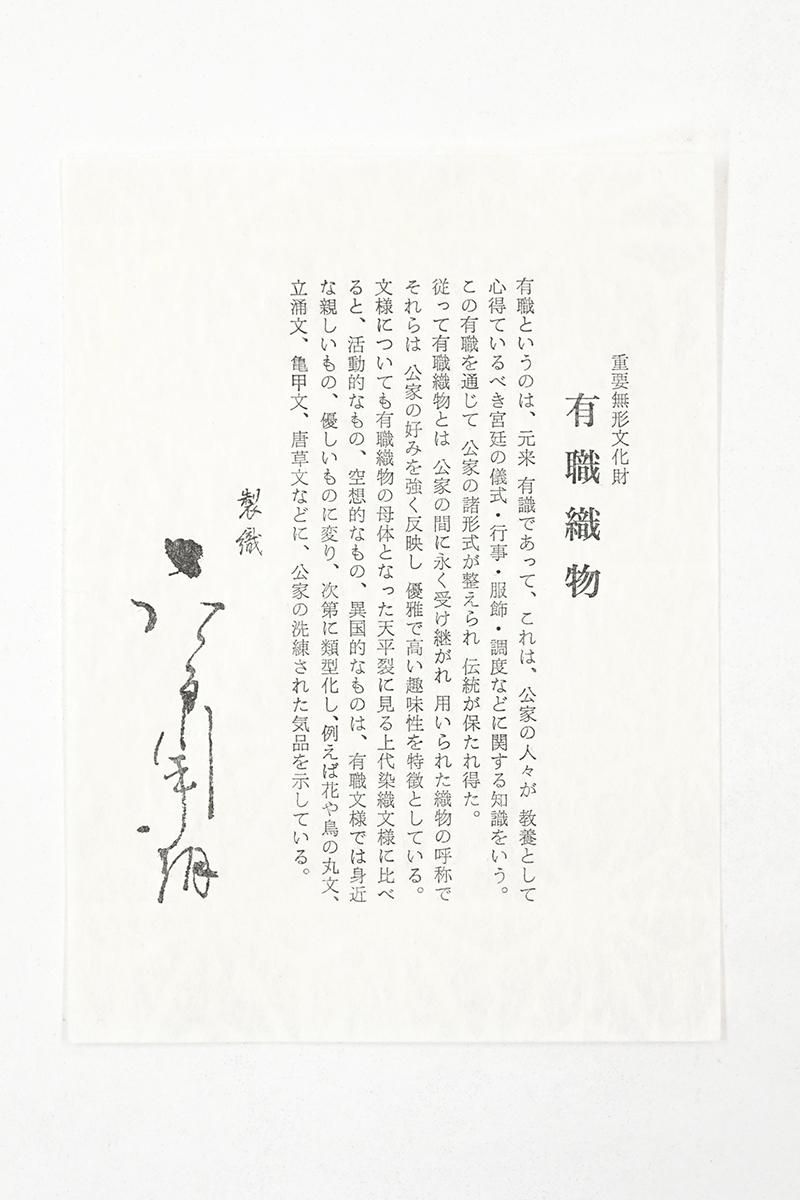 重要無形文化財
有職織物
有職というのは、元来 有識であって、これは、公家の人々が 教養として
心得ているべき宮廷の儀式・行事・服飾・調度などに関する知識をいう。
この有職を通じて 公家の諸形式が整えられ 伝統が保たれ得た。
従って有職織物とは 公家の間に永く受け継がれ 用いられた織物の呼称で
それらは 公家の好みを強く反映し 優雅で高い趣味性を特徴としている。
文様についても有職織物の母体となった天平裂に見る上代染織文様に比べ
ると、活動的なもの、空想的なもの、異国的なものは、有職文様では身近
な親しいもの、優しいものに変り、次第に類型化し、例えば花や鳥の丸文、
立涌文、亀甲文、唐草文などに、公家の洗練された気品を示している。
製織